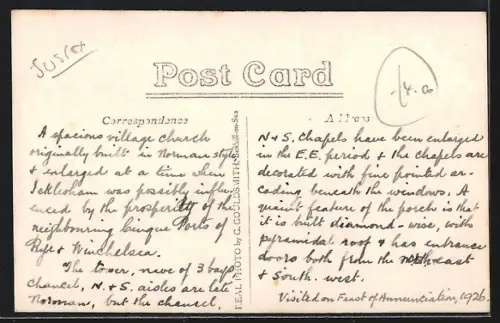 Sussex
-/4.00
Post Card
Correspondence
Address
A spacious village church
originally built in Norman style
& enlarged at a time when
Icklesham was possibly influ-
enced by the prosperity of the
neighbouring Cinque Ports of
Rye & Winchelsea.
The tower, nave of 3 bays
Chancel, N. & S. aisles are late
Norman, but the chancel,
REAL PHOTO by C. GOLDSMITH,
N & S. Chapels have been enlarged
in the E.E. period & the chapels are
decorated with fine pointed ar-
cading beneath the windows. A
quaint feature of the porch is that
it is built diamond-wise, with
pyramidal roof & has entrance
doors both from the north east
& South. west.
Visited on Feast of Annunciation, 1926.